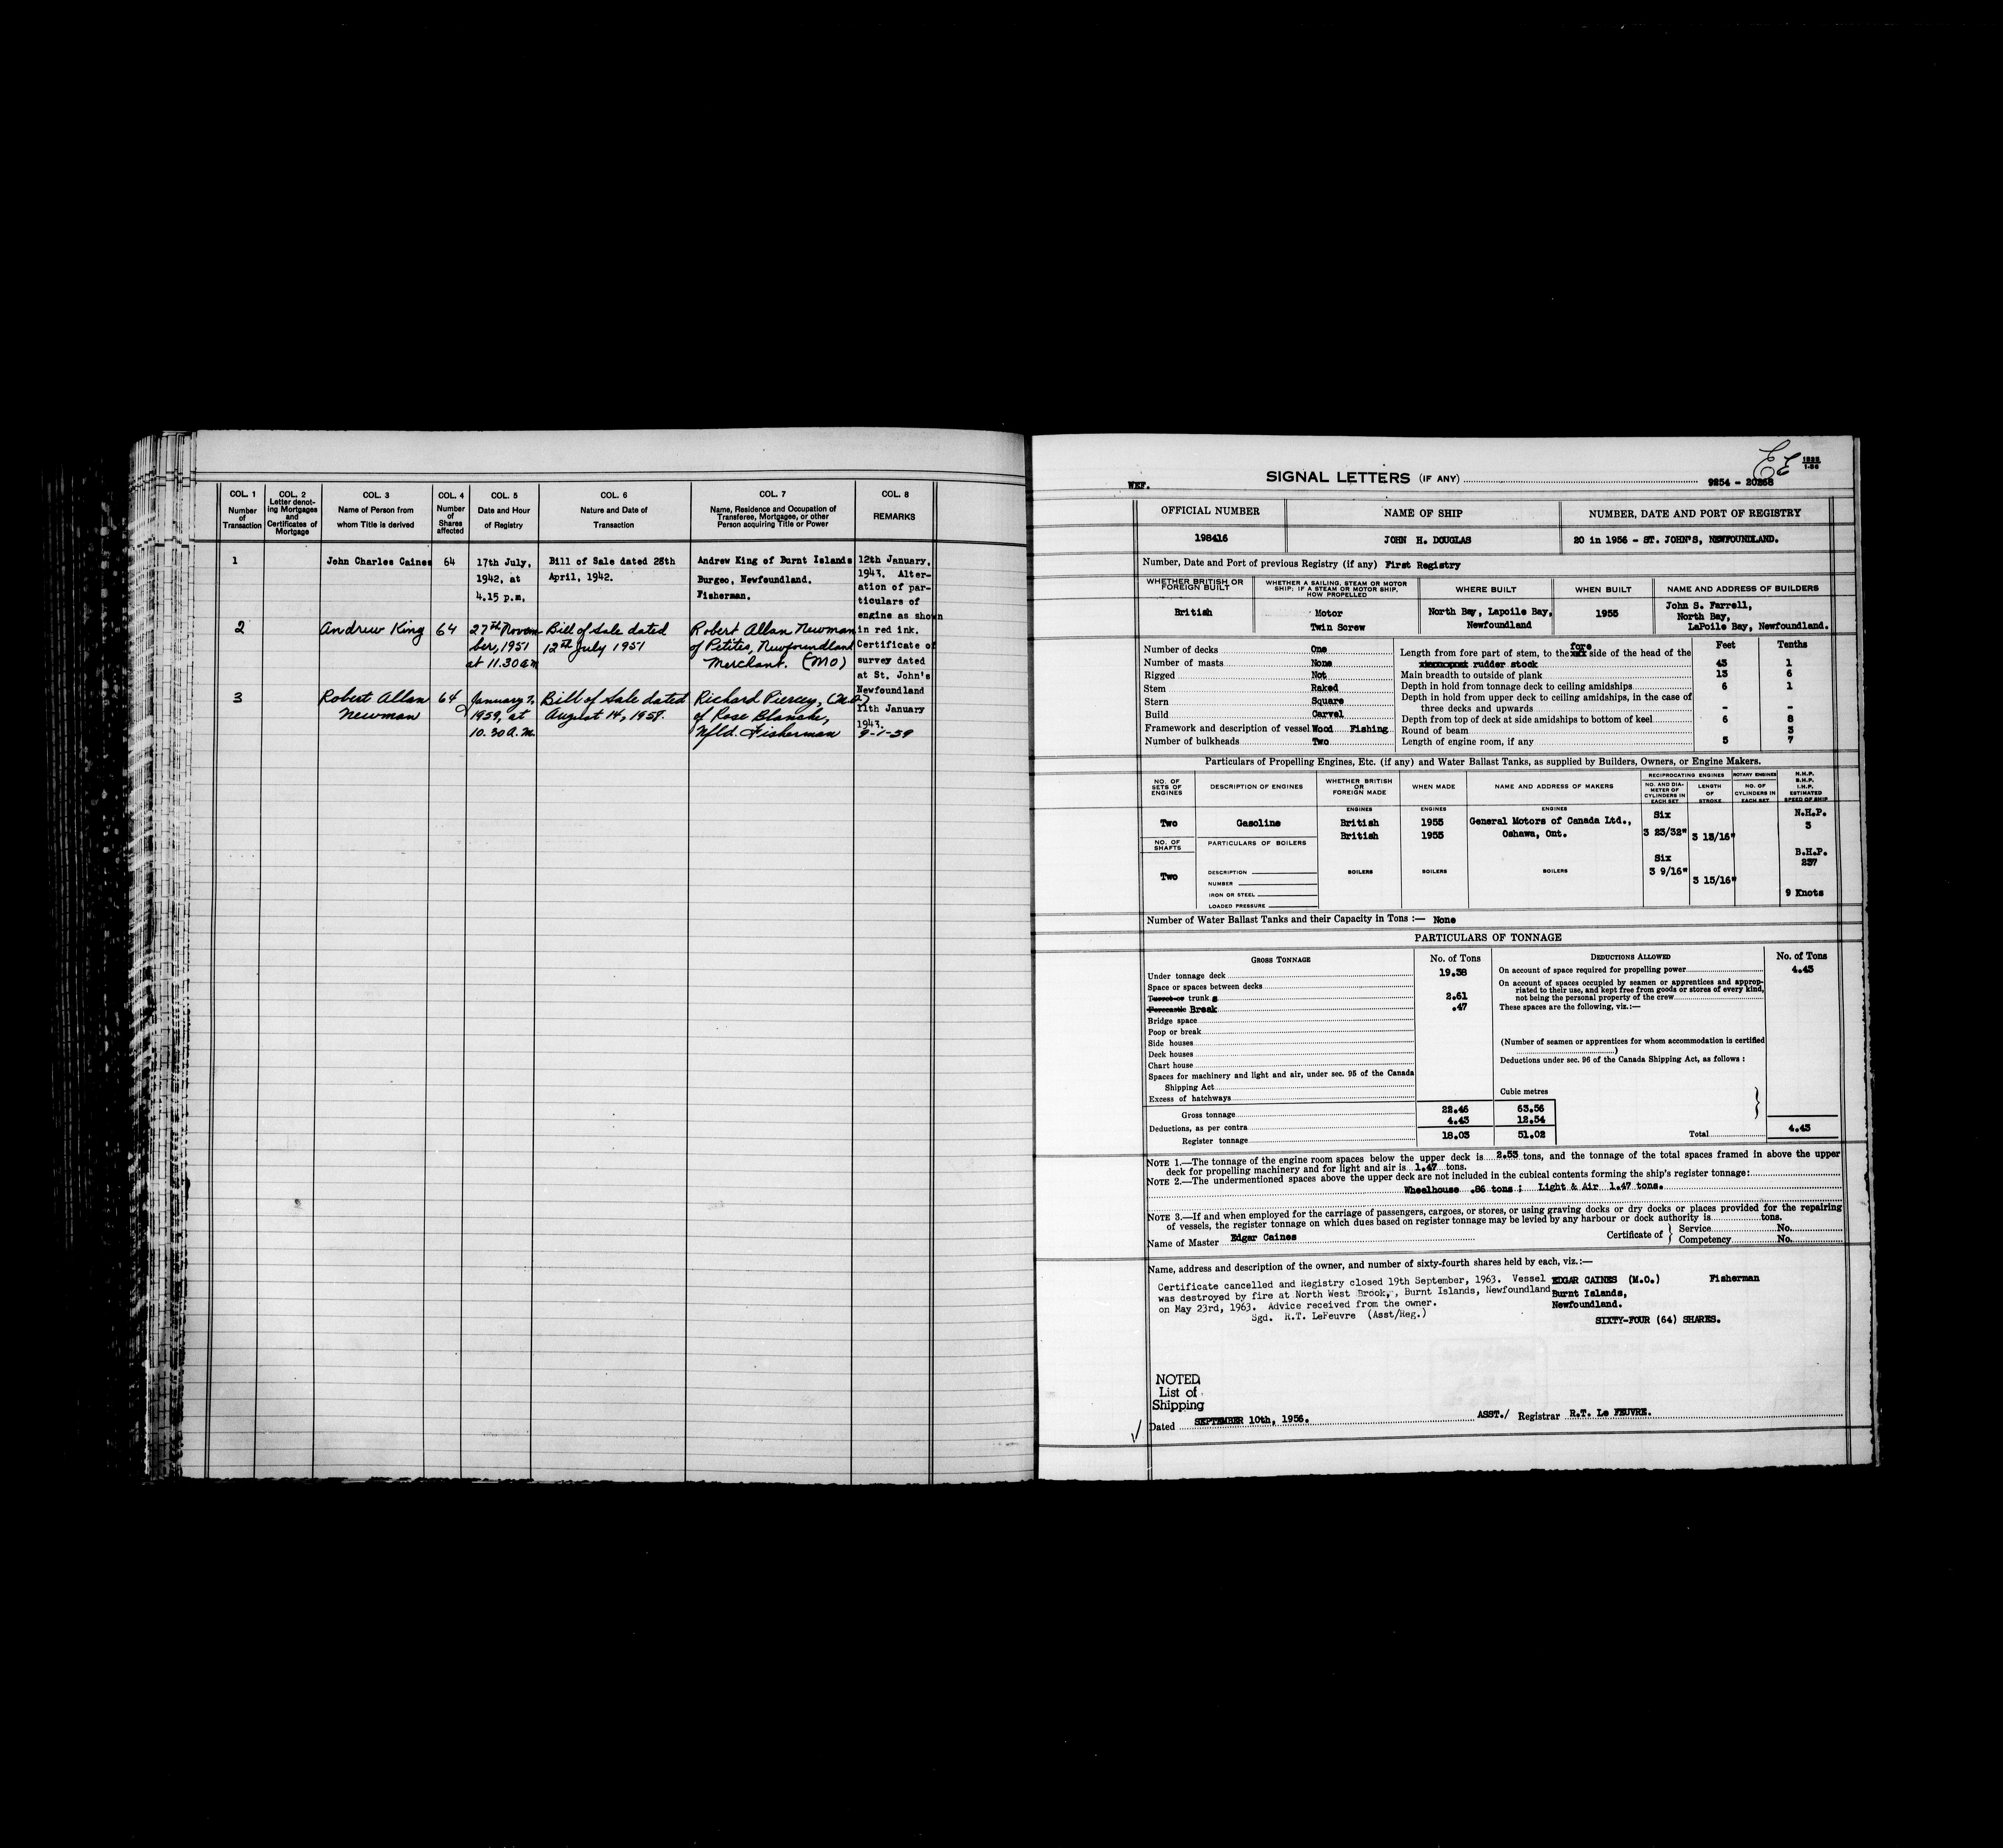 COL. 1
Number
of
Transaction
COL. 2
Letter denot-
ing Mortgages
and
Certificates of
Mortgage
COL. 3
Name of Person from
whom Title is derived
COL. 4
Number
of
Shares
affected
COL. 5
Date and Hour
of Registry
COL. 6
Nature and Date of
Transaction
COL. 7
Name, Residence and Occupation of
Transferee, Mortgagee, or other
Person acquiring Title or Power
COL. 8
REMARKS
1
John Charles Caines
64
17th July,
1942, at
4.15 p.m.
Bill of Sale dated 28th
April, 1942.
Andrew King of Burnt Islands
Burgeo, Newfoundland.
Fisherman.
12th January,
1943. Alter-
ation of par-
ticulars of
engine as shown
in red ink.
Certificate of
survey dated
at St. John's
Newfoundland
11th January
1943.
9-1-59
2
Andrew King
64
27th Novem
ber, 1951
at 11.30 am
Bill of Sale dated
12th July 1951
Robert Allan Newman
of Petites, Newfoundland
Merchant. (MO)
3
Robert Allan
Newman
64
January 7,
1959, at
10.30 A.M.
Bill of Sale dated
August 14, 1958.
Richard Piercey, (M.O.)
of Rose Blanche,
Nfld. Fisherman
WKF.
SIGNAL LETTERS (IF ANY)
9254 - 20268
OFFICIAL NUMBER
NAME OF SHIP
NUMBER, DATE AND PORT OF REGISTRY
198416
JOHN H. DOUGLAS
20 in 1956 - ST. JOHN'S, NEWFOUNDLAND.
Number, Date and Port of previous Registry (if any) First Registry
WHETHER BRITISH OR
FOREIGN BUILT
WHETHER A SAILING, STEAM OR MOTOR
SHIP; IF A STEAM OR MOTOR SHIP,
HOW PROPELLED
WHERE BUILT
WHEN BUILT
NAME AND ADDRESS OF BUILDERS
British
Motor
Twin Screw
North Bay, Lapoile Bay,
Newfoundland
1955
John S. Farrell,
North Bay,
LaPoile Bay, Newfoundland.
Number of decks One
Number of masts None
Rigged Not
Stem Raked
Stern Square
Build Carvel
Framework and description of vessel Wood Fishing
Number of bulkheads Two
Feet Tenths
Length from fore part of stem, to the fore side of the head of the
rudder stock 43 1
Main breadth to outside of plank 13 6
Depth in hold from tonnage deck to ceiling amidships 6 1
Depth in hold from upper deck to ceiling amidships, in the case of
three decks and upwards - -
Depth from top of deck at side amidships to bottom of keel 6 8
Round of beam 3
Length of engine room, if any 5 7
Particulars of Propelling Engines, Etc. (if any) and Water Ballast Tanks, as supplied by Builders, Owners, or Engine Makers.
NO. OF
SETS OF
ENGINES
DESCRIPTION OF ENGINES
WHETHER BRITISH
OR
FOREIGN MADE
WHEN MADE
NAME AND ADDRESS OF MAKERS
RECIPROCATING ENGINES
NO. AND DIA-
METER OF
CYLINDERS IN
EACH SET
LENGTH
OF
STROKE
ROTARY ENGINES
NO. OF
CYLINDERS IN
EACH SET
N.H.P.
B.H.P.
I.H.P.
ESTIMATED
SPEED OF SHIP
ENGINES
ENGINES
ENGINES
Two
Gasoline
British
British
1955
1955
General Motors of Canada Ltd.,
Oshawa, Ont.
Six
3 23/32"
3 13/16"
N.H.P.
3
NO. OF
SHAFTS
PARTICULARS OF BOILERS
Two
DESCRIPTION
NUMBER
IRON OR STEEL
LOADED PRESSURE
BOILERS
BOILERS
BOILERS
Six
3 9/16"
3 15/16"
B.H.P.
237
9 Knots
Number of Water Ballast Tanks and their Capacity in Tons :— None
PARTICULARS OF TONNAGE
GROSS TONNAGE
No. of Tons
DEDUCTIONS ALLOWED
No. of Tons
Under tonnage deck 19.38
Space or spaces between decks
Turret or trunk s 2.61
Forecastle Break .47
Bridge space
Poop or break
Side houses
Deck houses
Chart house
Spaces for machinery and light and air, under sec. 95 of the Canada
Shipping Act
Excess of hatchways
On account of space required for propelling power 4.43
On account of spaces occupied by seamen or apprentices and approp-
riated to their use, and kept free from goods or stores of every kind,
not being the personal property of the crew
These spaces are the following, viz.:—
(Number of seamen or apprentices for whom accommodation is certified
)
Deductions under sec. 96 of the Canada Shipping Act, as follows :
Cubic metres
Gross tonnage 22.46 63.56
Deductions, as per contra 4.43 12.54
Register tonnage 18.03 51.02
Total 4.43
NOTE 1.—The tonnage of the engine room spaces below the upper deck is 2.53 tons, and the tonnage of the total spaces framed in above the upper
deck for propelling machinery and for light and air is 1.47 tons.
NOTE 2.—The undermentioned spaces above the upper deck are not included in the cubical contents forming the ship's register tonnage:
Wheelhouse .86 tons ; Light & Air 1.47 tons.
NOTE 3.—If and when employed for the carriage of passengers, cargoes, or stores, or using graving docks or dry docks or places provided for the repairing
of vessels, the register tonnage on which dues based on register tonnage may be levied by any harbour or dock authority is tons.
Name of Master Edgar Caines
Certificate of } Service No.
Competency No.
Name, address and description of the owner, and number of sixty-fourth shares held by each, viz.:—
Certificate cancelled and Registry closed 19th September, 1963. Vessel
was destroyed by fire at North West Brook, Burnt Islands, Newfoundland
on May 23rd, 1963. Advice received from the owner.
Sgd. R.T. LeFeuvre (Asst/Reg.)
EDGAR CAINES (M.O.) Fisherman
Burnt Islands,
Newfoundland.
SIXTY-FOUR (64) SHARES.
NOTED
List of
Shipping
Dated SEPTEMBER 10th, 1956.
ASST./ Registrar R.T. Le FEUVRE.